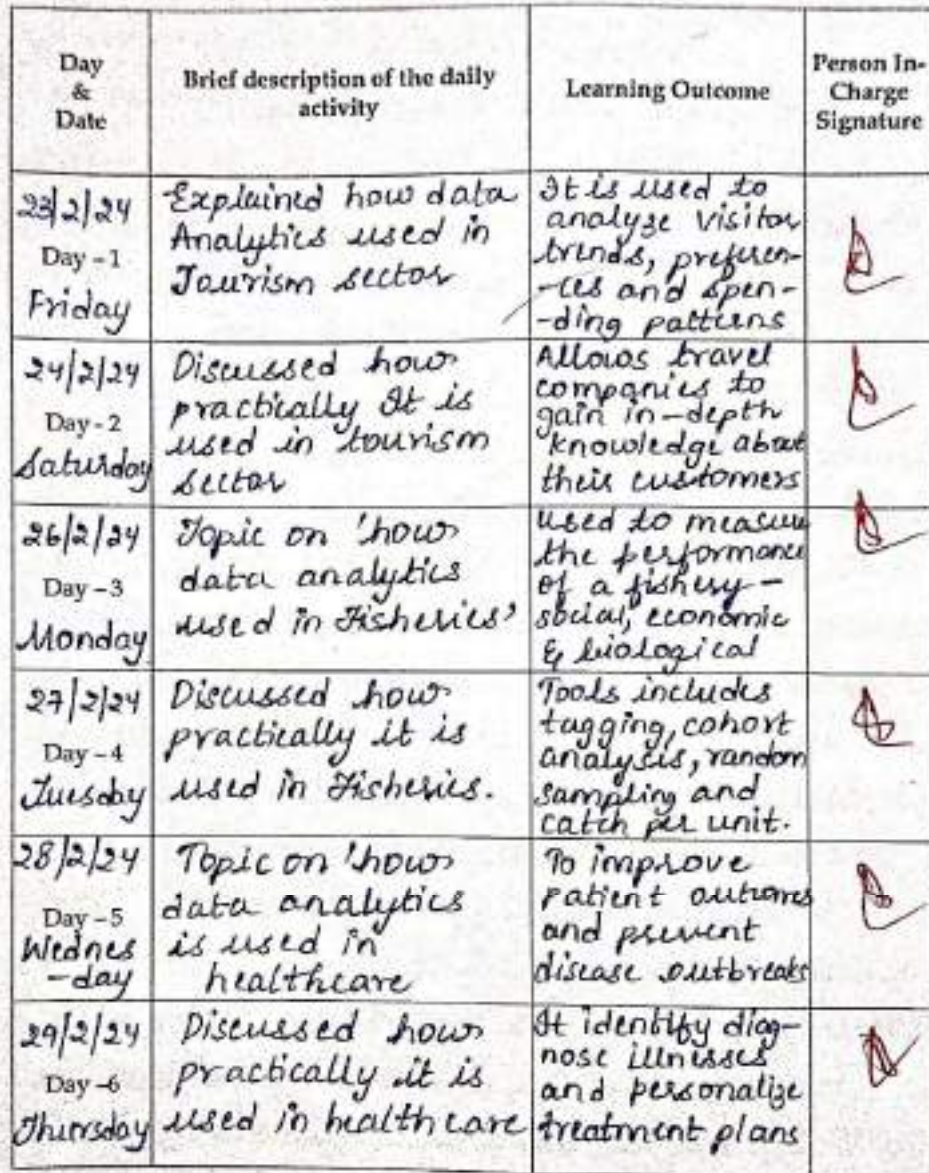 Day
&
Date
Brief description of the daily
activity
Learning Outcome
Person In-
Charge
Signature
23/2/24
Day -1
Friday
Explained how data
Analytics used in
Tourism sector
It is used to
analyze visitor
trends, preferen-
-ces and spen-
-ding patterns
24/2/24
Day - 2
Saturday
Discussed how
practically It is
used in tourism
sector
Allows travel
companies to
gain in-depth
knowledge about
their customers
26/2/24
Day - 3
Monday
Topic on 'how
data analytics
used in Fisheries'
used to measure
the performance
of a fishery -
social, economic
& biological
27/2/24
Day - 4
Tuesday
Discussed how
practically it is
used in Fisheries.
Tools includes
tagging, cohort
analysis, random
sampling and
catch per unit.
28/2/24
Day - 5
Wednes
-day
Topic on 'how
data analytics
is used in
healthcare
To improve
patient outcomes
and prevent
disease outbreaks
29/2/24
Day -6
Thursday
Discussed how
practically it is
used in health care
It identify diag-
nose illnesses
and personalize
treatment plans